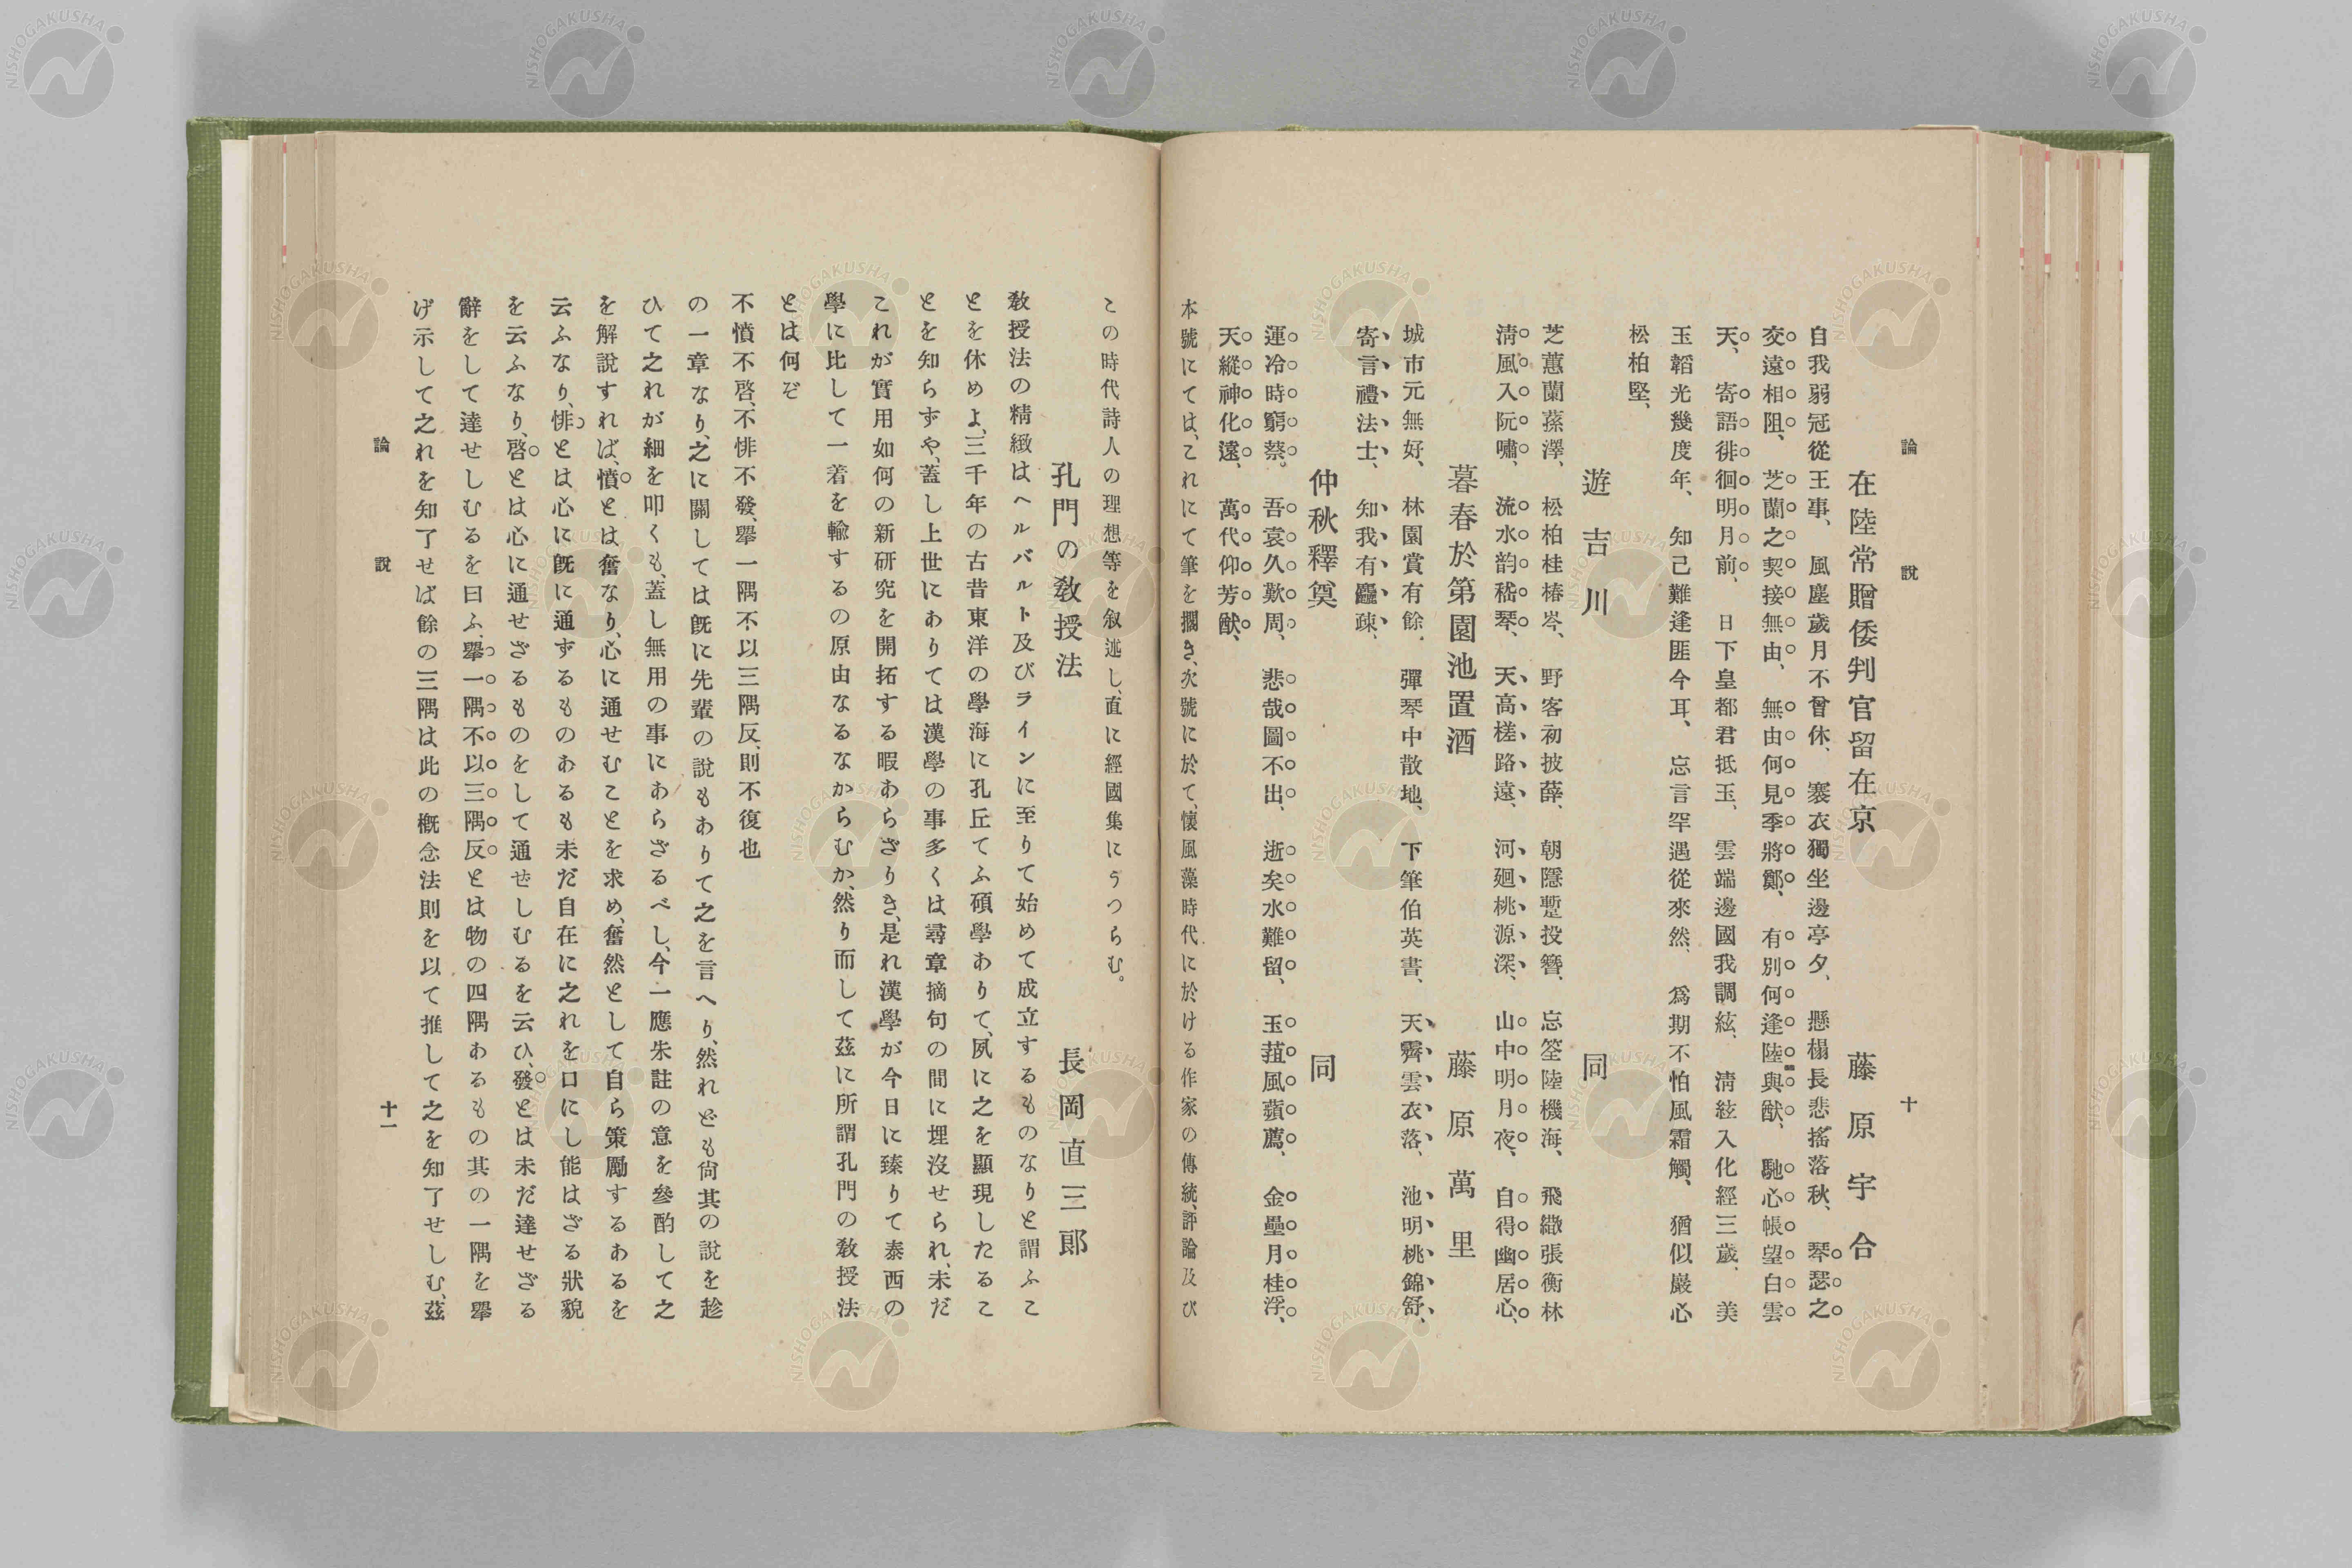 論說
十
在陸常贈倭判官留在京　藤原宇合
自我弱冠從王事、風塵歲月不曾休、褰衣獨坐邊亭夕、懸榻長悲搖落秋、琴瑟之
交遠相阻、芝蘭之契接無由、無由何見李將鄭、有別何逢陸與猷、馳心悵望白雲
天、寄語徘徊明月前、日下皇都君抵玉、雲端邊國我調絃、淸絃入化經三歲、美
玉韜光幾度年、知己難逢匪今耳、忘言罕遇從來然、爲期不怕風霜觸、猶似巖心
松柏堅、
遊吉川　同
芝蕙蘭蓀澤、松柏桂椿岑、野客初披薜、朝隱蹔投簪、忘筌陸機海、飛繳張衡林
淸風入阮嘯、流水韵嵇琴、天高槎路遠、河廻桃源深、山中明月夜、自得幽居心、
暮春於第園池置酒　藤原萬里
城市元無好、林園賞有餘、彈琴中散地、下筆伯英書、天霽雲衣落、池明桃錦舒、
寄言禮法士、知我有麤疎、
仲秋釋奠　同
運冷時窮蔡。吾衰久歎周、悲哉圖不出、逝矣水難留、玉葅風蘋薦、金罍月桂浮、
天縱神化遠、萬代仰芳猷、
本號にては、これにて筆を擱き、次號に於て、懷風藻時代に於ける作家の傳統、評論及び
この時代詩人の理想等を叙述し、直に經國集にうつらむ。
孔門の敎授法　長岡直三郞
敎授法の精緻はヘルバルト及びラインに至りて始めて成立するものなりと謂ふこ
とを休めよ、三千年の古昔東洋の學海に孔丘てふ碩學ありて、夙に之を顯現したるこ
とを知らずや、蓋し上世にありては漢學の事多くは尋章摘句の間に埋沒せられ、未だ
これが實用如何の新研究を開拓する暇あらざりき、是れ漢學が今日に臻りて泰西の
學に比して一着を輸するの原由なるなからむか、然り而して茲に所謂孔門の敎授法
とは何ぞ
不憤不啓、不悱不發、擧一隅不以三隅反、則不復也
の一章なり、之に關しては旣に先輩の說もありて之を言へり、然れども尙其の說を趁
ひて之れが細を叩くも、蓋し無用の事にあらざるべし、今一應朱註の意を參酌して之
を解說すれば、憤とは奮なり、心に通せむことを求め、奮然として自ら策勵するあるを
云ふなり、悱とは心に旣に通ずるものあるも未だ自在に之れを口にし能はざる狀貌
を云ふなり、啓とは心に通せざるものをして通せしむるを云ひ、發とは未だ達せざる
辭をして達せしむるを曰ふ、擧一隅不以三隅反とは物の四隅あるもの其の一隅を擧
げ示して之れを知了せば餘の三隅は此の槪念法則を以て推して之を知了せしむ、茲
論說
十一
NISHOGAKUSHA